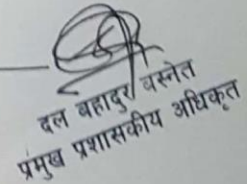 दल बहादुर बस्नेत
प्रमुख प्रशासकीय अधिकृत